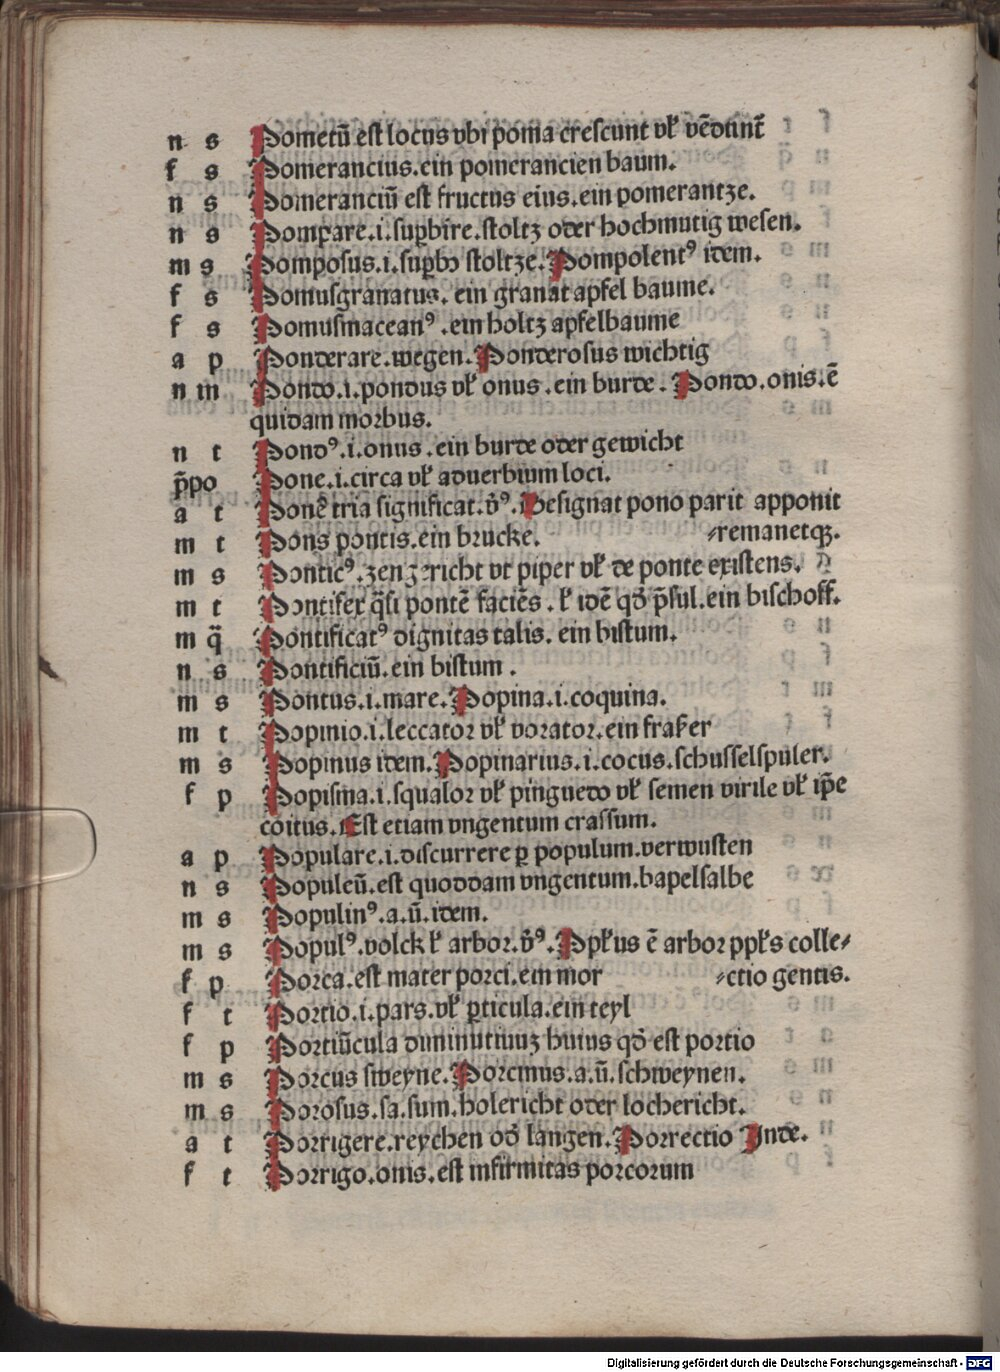 n s Pometū est locus vbi poma crescunt vł vēdūnt̄
f s Pomerancius.ein pomerancien baum.
n s Pomeranciū est fructus eius.ein pomerantze.
n s Pompare.i.suꝑbire.stoltz oder hochmutig wesen.
m s Pomposus.i.suꝑbꝰ stoltze.Pompolentꝰ idem.
f s Pomusgranatus. ein granat apfel baume.
f s Pomusmaceanꝰ .ein holtz apfelbaume
a p Ponderare.wegen.Ponderosus wichtig
n m Pondo.i.pondus vł onus .ein burde. Pondo.onis.ē
quidam morbus.
n t Pondꝰ.i.onus .ein burde oder gewicht
p̄po Pone.i.circa vł aduerbium loci.
a t Ponē tria significat.v̄ꝰ.Designat pono parit apponit
m t Pons pontis.ein brucke. ⸗remanetqꝫ.
m s Ponticꝰ.zengericht vt piper vł de ponte existens.
m t Pontifex q̄si pontē faciēs. ł idē qd̄ p̄sul.ein bischoff.
m q̄ Pontificatꝰ dignitas talis. ein bistum.
n s Pontificiū.ein bistum .
m s Pontus.i.mare.Popina.i.coquina.
m t Popinio.i.leccator vł vorator.ein fraßer
m s Popinus idem.Popinarius.i.cocus.schusselspuler.
f p Popisma.i.squalor vł pinguedo vł semen virile vł ip̄e
coitus.Est etiam vngentum crassum.
a p Populare.i.discurrere ꝑ populum.verwusten
n s Populeū.est quoddam vngentum.bapelsalbe
m s Populinꝰ.a.ū.idem.
m s Populꝰ.volck ł arbor.v̄ꝰ.Ppłus ē arbor ppłs colle⸗
f p Porca.est mater porci.ein mor ⸗ctio gentis.
f t Portio.i.pars.vł ꝑticula.ein teyl
f p Portiūcula diminutiuuꝫ huius qd̄ est portio
m s Porcus sweyne.Porcinus.a.ū.schweynen.
m s Porosus.sa.sum.holericht oder lochericht.
a t Porrigere.reychen od̄ langen.Porrectio Inde.
f t Porrigo.onis.est infirmitas porcorum
Digitalisierung gefördert durch die Deutsche Forschungsgemeinschaft - DFG